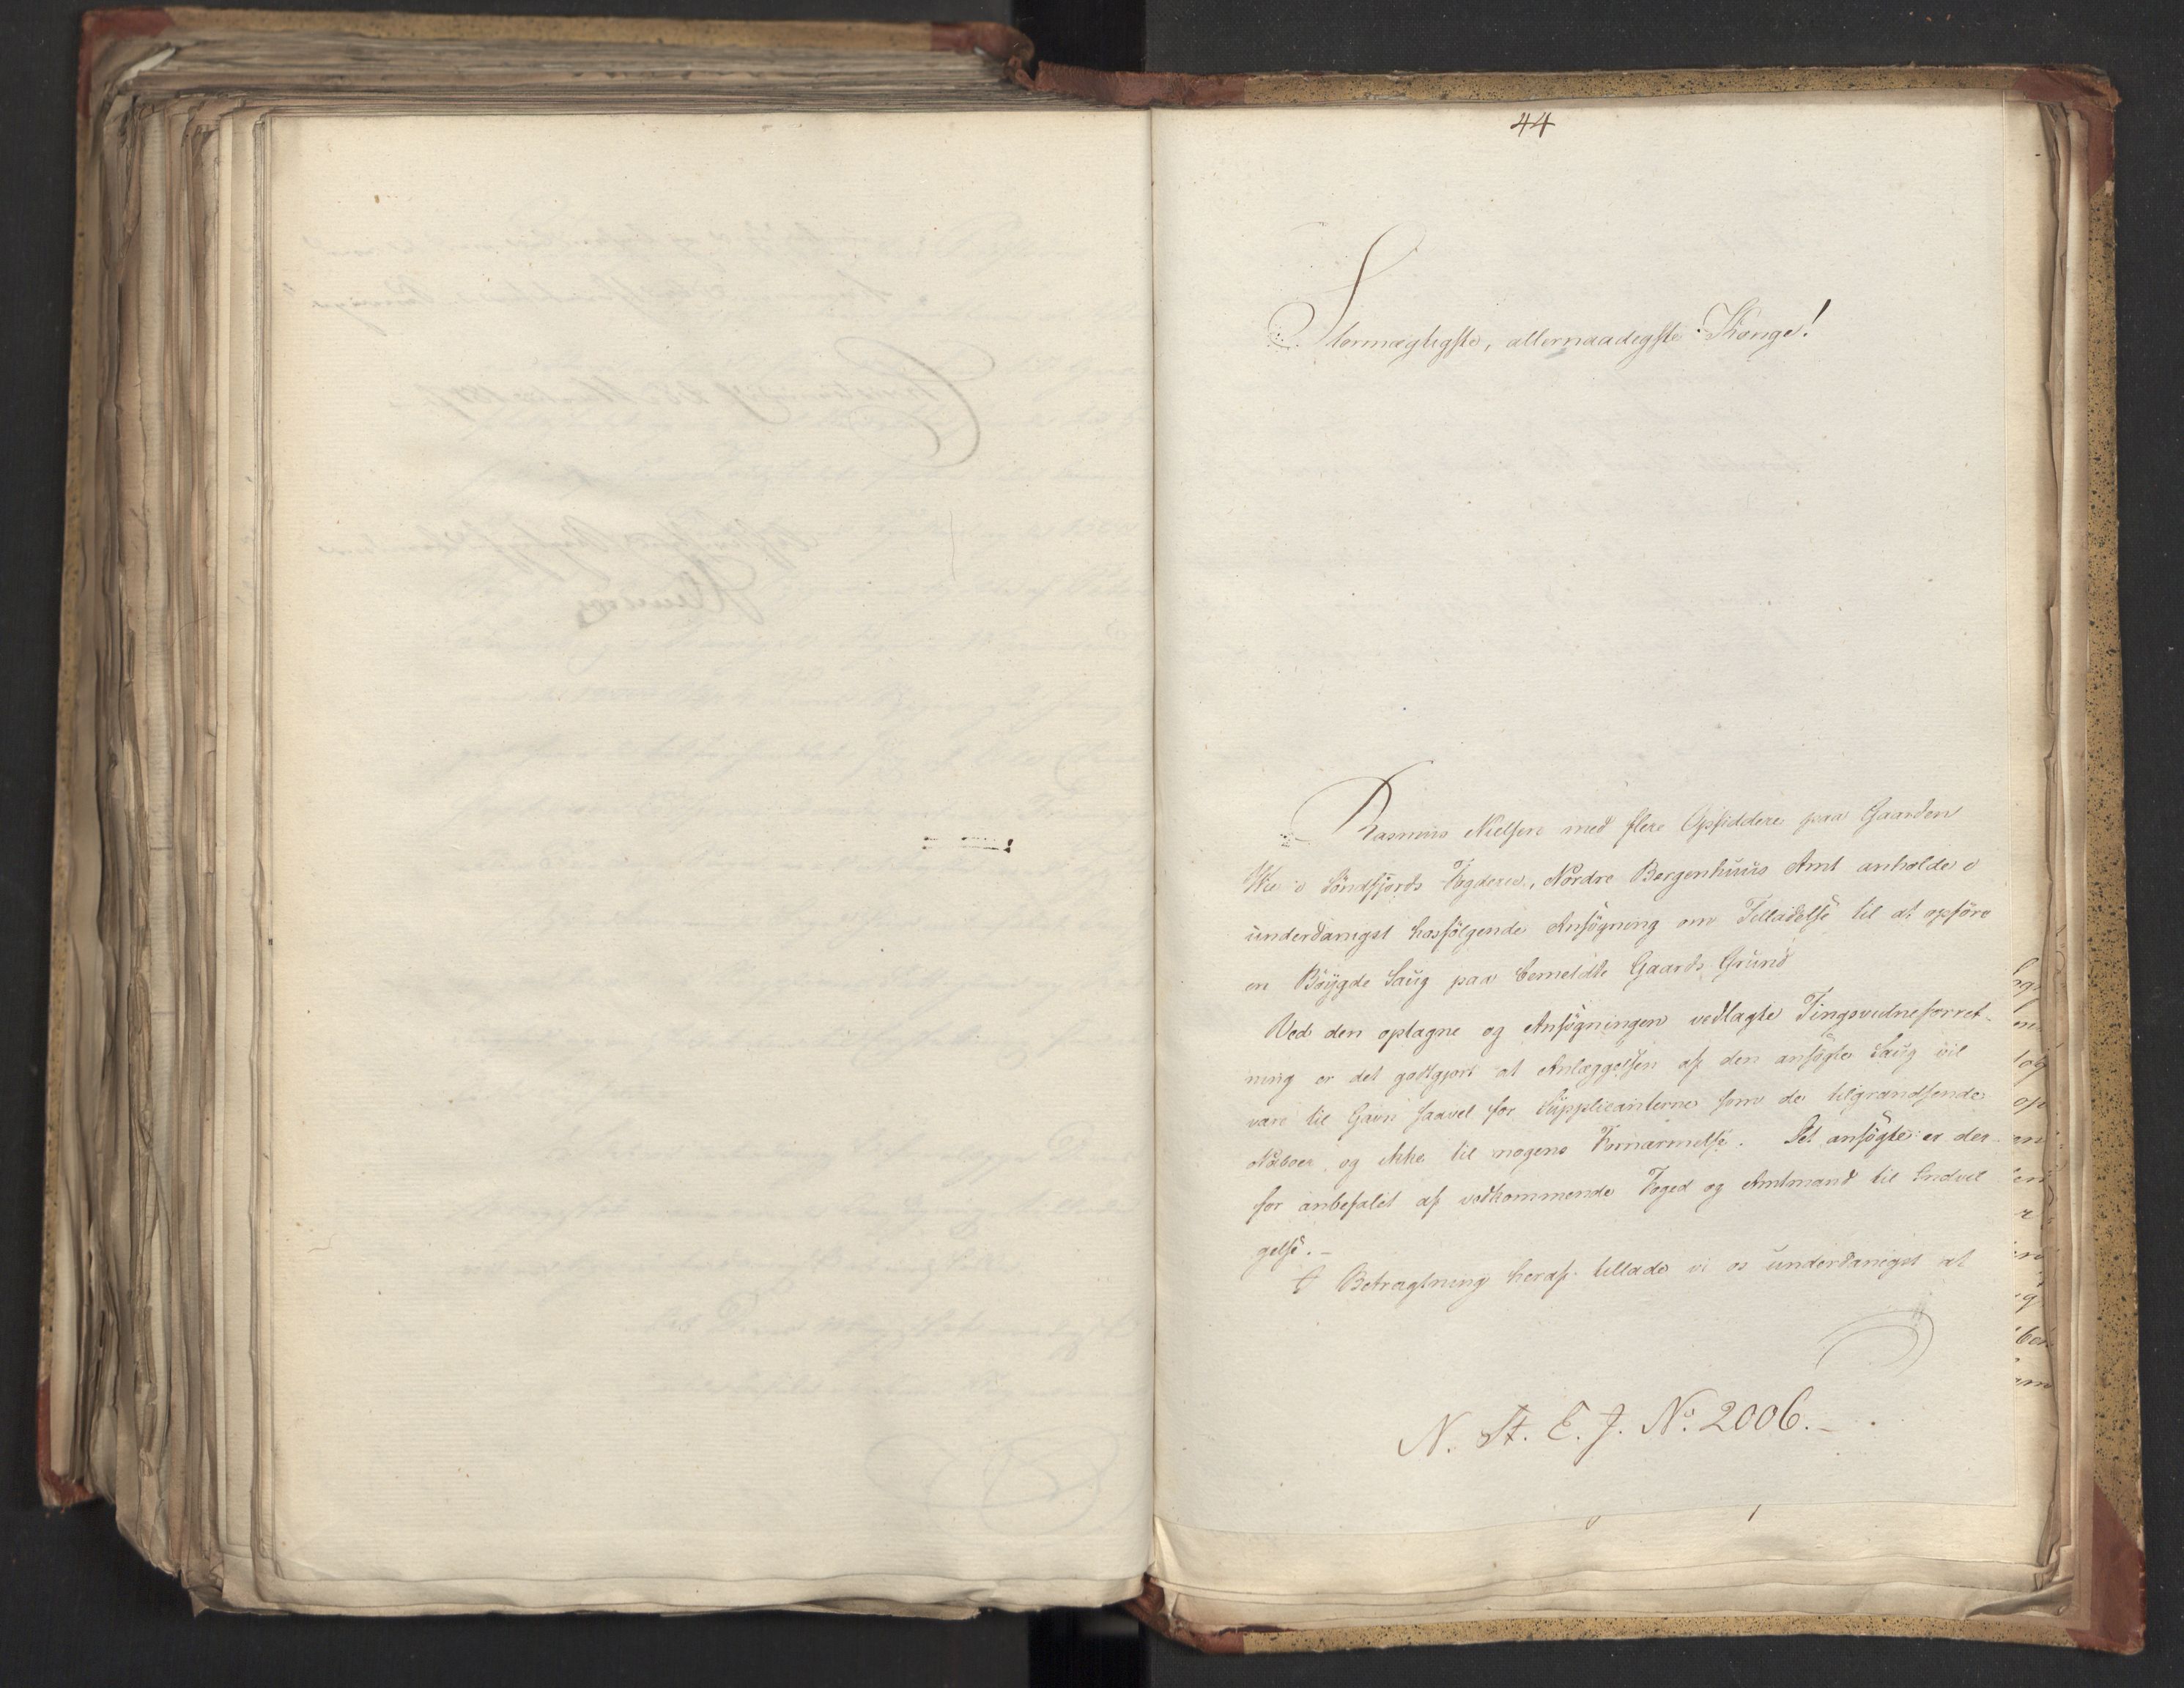 44
Stormægtigste, allernaadigste Konge!
Rasmus Nielsen med flere Opsiddere paa Gaarden
Wie i Söndfjords Fogderie, Nordre Bergenhuus Amt anholde i
underdanigst hosfölgende Ansögning om Tilladelse til at opföre
en Böygde Saug paa bemeldte Gaards Grund
Ved den optagne og Ansögningen vedlagte Tingsvidneforret-
ning er det godtgjort at Anlæggelsen af den ansögte Saug vil
være til Gavn saavel for Supplicanterne som de tilgrændsende
Naboer og ikke til nogens Fornærmelse. Det ansögte er der-
for anbefalet af vedkommende Foged og Amtmand til Indvil
gelse. -
I Betragtning heraf tillade vi os underdanigst at
N. St. E. J. No. 2006. -